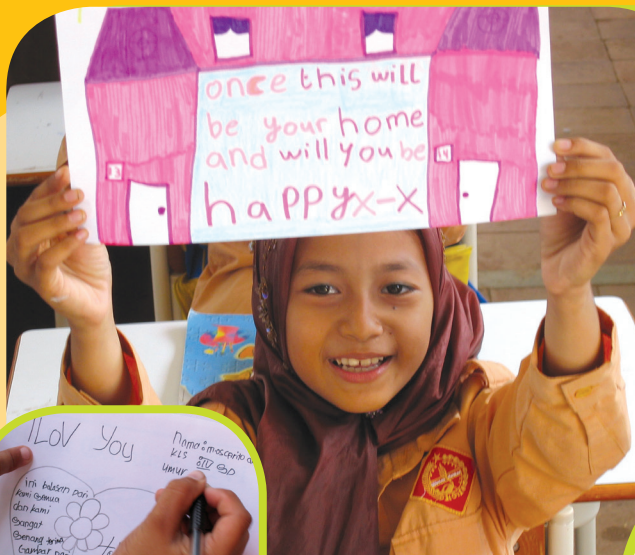 once this will
be your home
and will you be
happy x-x
13
14
I LoV You
Nama :
KLS IV SD
Umur
ini balasan Dari
Kami Semua
dan kami
Sangat
Senang
Gambar